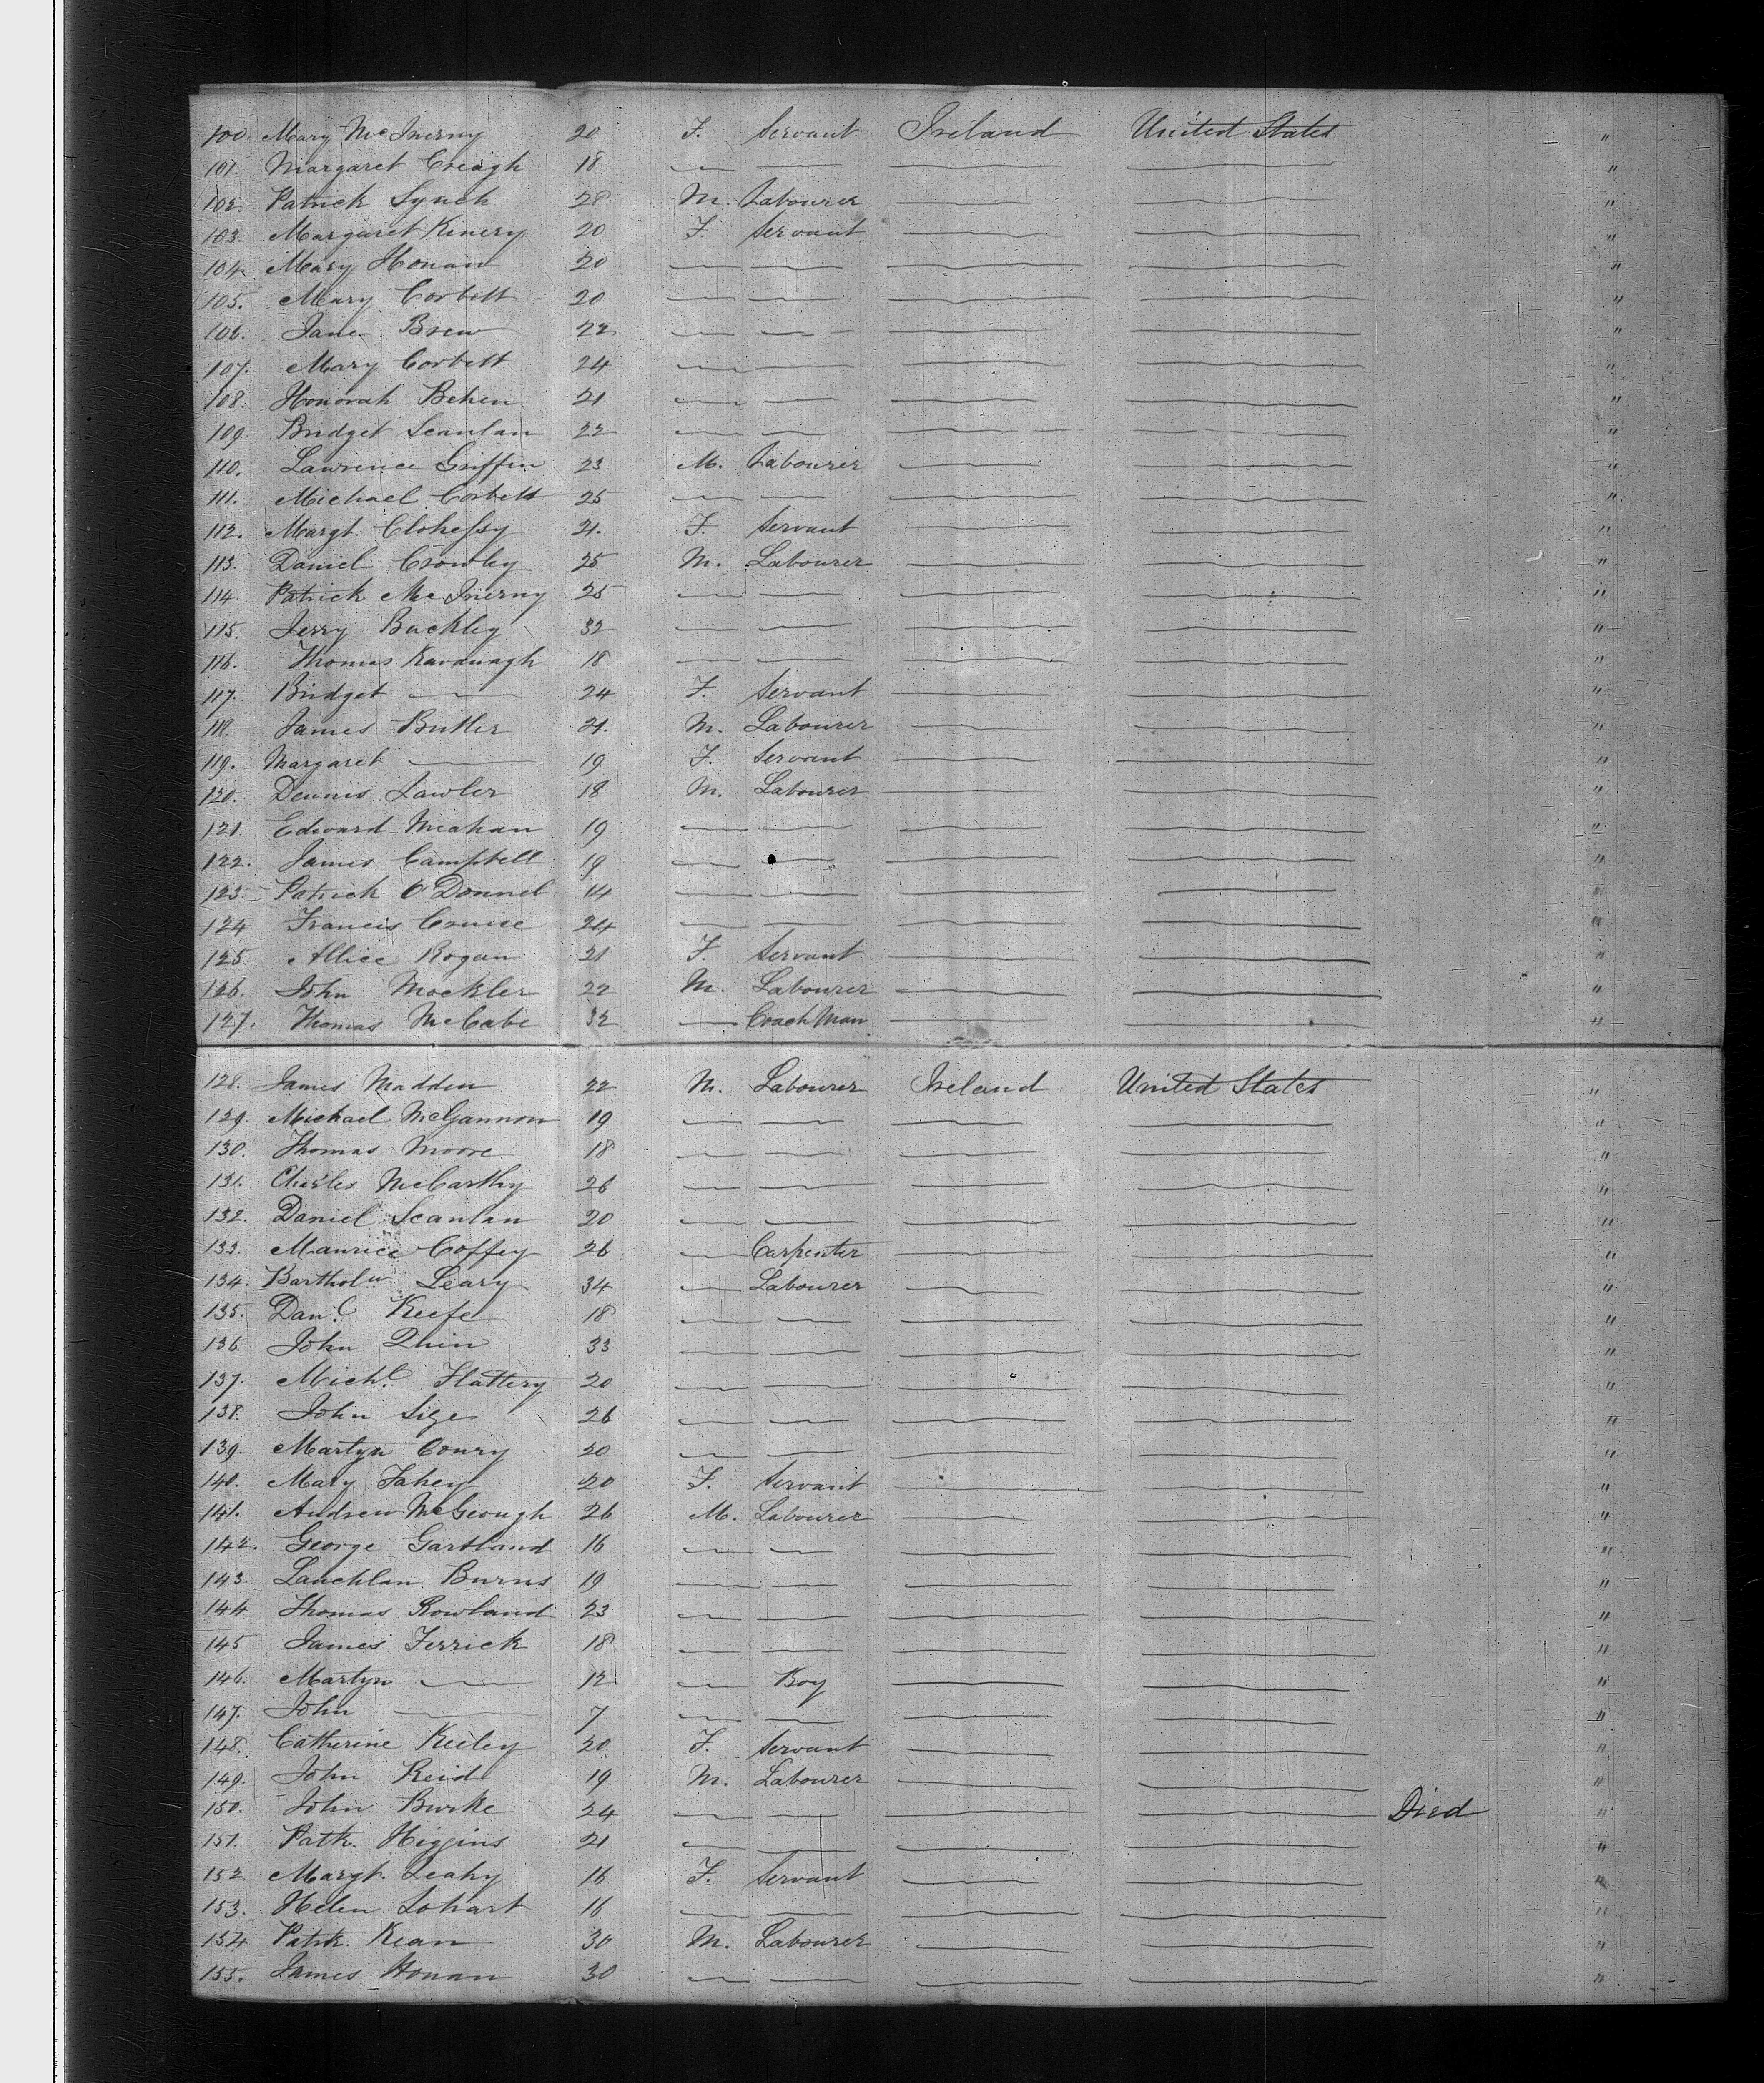 100. Mary McInerny 20 F. Servant Ireland United States "
101. Margaret Creagh 18 — — — — "
102. Patrick Lynch 28 M. Labourer — — "
103. Margaret Kinery 20 F. Servant — — "
104. Mary Honan 20 — — — — "
105. Mary Corbett 20 — — — — "
106. Jane Brew 22 — — — — "
107. Mary Corbett 24 — — — — "
108. Honorah Behen 21 — — — — "
109. Bridget Scanlan 22 — — — — "
110. Lawrence Griffin 23 M. Labourer — — "
111. Michael Corbett 25 — — — — "
112. Margt. Clohessy 21. F. Servant — — "
113. Daniel Crowley 25 M. Labourer — — "
114. Patrick McInerny 25 — — — — "
115. Jerry Buckley 32 — — — — "
116. Thomas Kavanagh 18 — — — — "
117. Bridget — 24 F. Servant — — "
118. James Butler 21. M. Labourer — — "
119. Margaret — 19 F. Servant — — "
120. Dennis Lawler 18 M. Labourer — — "
121. Edward Meahan 19 — — — — "
122. James Campbell 19 — — — — "
123. Patrick O'Donnel 14 — — — — "
124 Francis Cruise 24 — — — — "
125. Allice Rogan 21 F. Servant — — "
126. John Mockler 22 M. Labourer — — "
127. Thomas McCabe 32 — Coach Man — — "
128. James Madden 22 M. Labourer Ireland United States "
129. Michael McGannon 19 — — — — "
130. Thomas Moore 18 — — — — "
131. Charles McCarthy 26 — — — — "
132. Daniel Scanlan 20 — — — — "
133. Maurice Coffey 26 — Carpenter — — "
134. Bartholw Leary 34 — Labourer — — "
135. Danl. Keefe 18 — — — — "
136. John Quin 33 — — — — "
137. Michl. Flattery 20 — — — — "
138. John Sige 26 — — — — "
139. Martyn Conry 20 — — — — "
140. Mary Fahey 20 F. Servant — — "
141. Andrew McGeough 26 M. Labourer — — "
142. George Gartland 16 — — — — "
143. Lauchlan Burns 19 — — — — "
144 Thomas Rowland 23 — — — — "
145 James Ferrick 18 — — — — "
146. Martyn — 12 — Boy — — "
147. John — 7 — — — — "
148. Catherine Keiley 20 F. Servant — — "
149. John Reid 19 M. Labourer — — "
150. John Burke 24 — — — — Died "
151. Patk. Higgins 21 — — — — "
152 Margt. Leahy 16 F. Servant — — "
153. Helen Lohart 16 — — — — "
154 Patk. Kean 30 M. Labourer — — "
155. James Honan 30 — — — — "